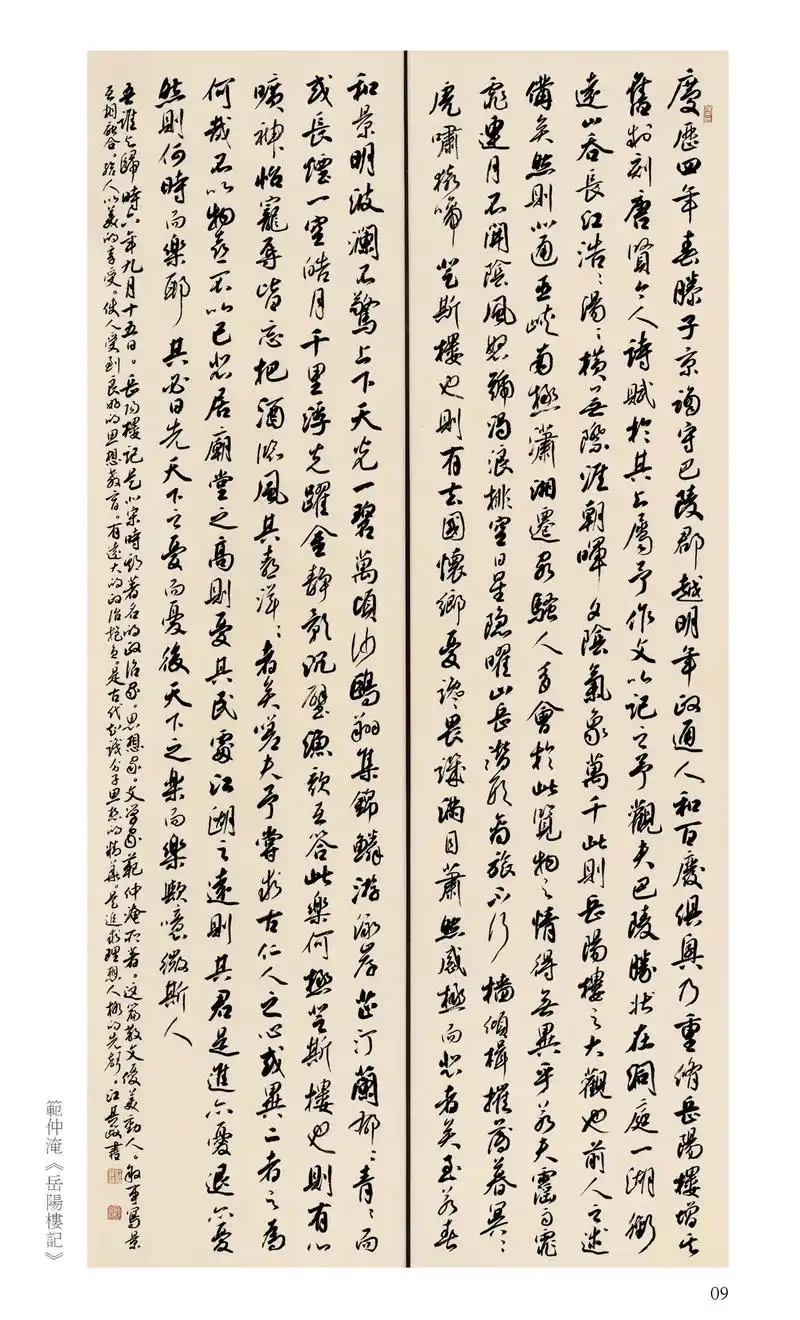 慶歷四年春滕子京謫守巴陵郡越明年政通人和百廢俱興乃重脩岳陽樓增其
舊制刻唐賢今人詩賦於其上屬予作文以記之予觀夫巴陵勝狀在洞庭一湖銜
遠山吞長江浩〻湯〻橫無際涯朝暉夕陰氣象萬千此則岳陽樓之大觀也前人之述
備矣然則北通巫峽南極瀟湘遷客騷人多會於此覽物之情得無異乎若夫霪雨霏
霏連月不開陰風怒號濁浪排空日星隱曜山岳潛形商旅不行檣傾楫摧薄暮冥〻
虎嘯猿啼登斯樓也則有去國懷鄉憂讒畏譏滿目蕭然感極而悲者矣至若春
和景明波瀾不驚上下天光一碧萬頃沙鷗翔集錦鱗游泳岸芷汀蘭郁〻青〻而
或長煙一空皓月千里浮光躍金靜影沉璧漁歌互答此樂何極登斯樓也則有心
曠神怡寵辱皆忘把酒臨風其喜洋〻者矣嗟夫予嘗求古仁人之心或異二者之為
何哉不以物喜不以己悲居廟堂之高則憂其民處江湖之遠則其君是進亦憂退亦憂
然則何時而樂耶其必曰先天下之憂而憂後天下之樂而樂歟噫微斯人
吾誰与歸時六年九月十五日。岳陽樓記是北宋時期著名的政治家。思想家。文學家範仲淹所著。這篇散文優美動人。敘事寫景
互相融合。給人以美的享受。使人受到良好的思想教育。有遠大的政治抱負。是古代知識分子思想的精華。是追求理想人格的先聲。江政書
範仲淹《岳陽樓記》
09